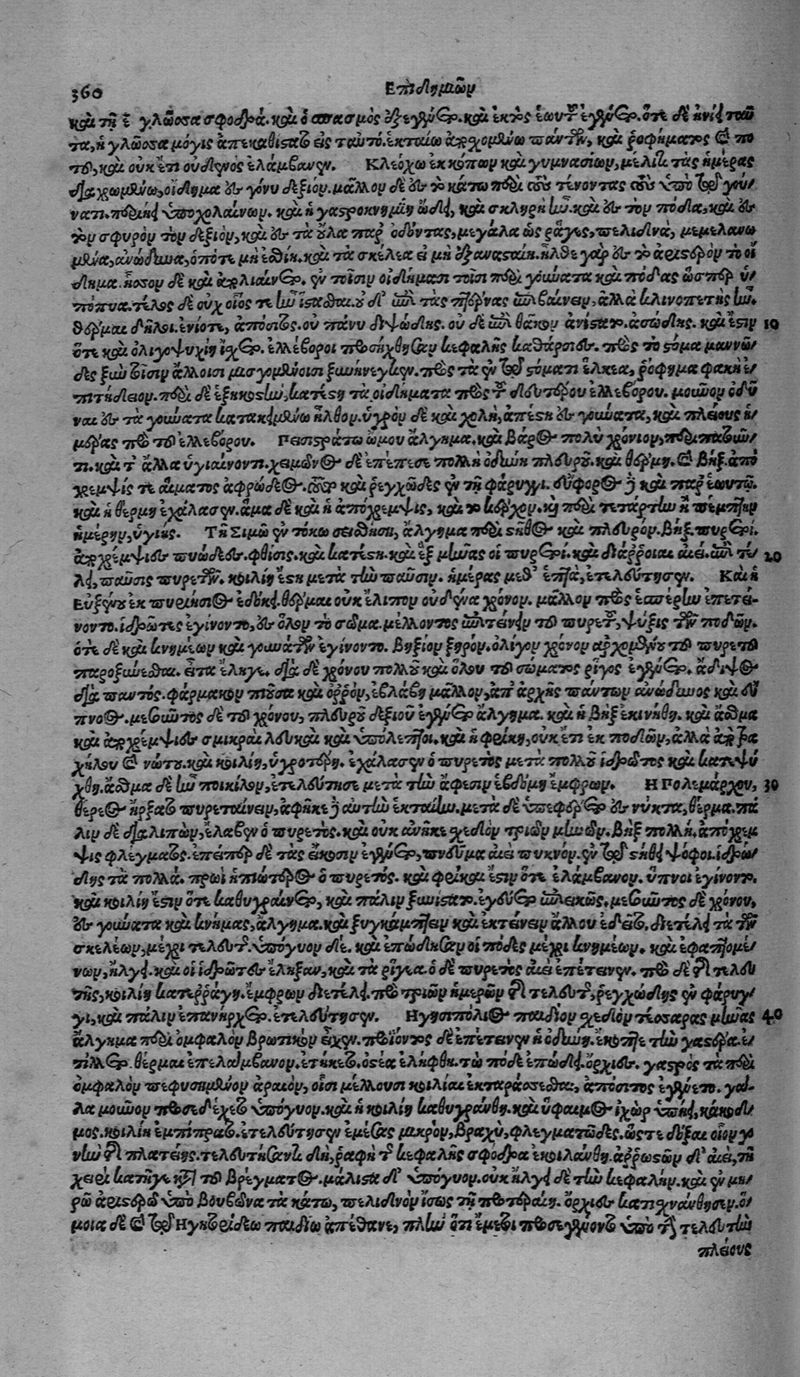 360 Ἐπιδημιῶν
καὶ τῇ γλῶσσα σφοδρά. καὶ ὁ σπασμὸς ἐγένετο. καὶ ἐκτὸς ἑωυτοῦ ἐγένετο. ὅτε δὲ
τα, ἡ γλῶσσα μόγις ἀπεκαθίστατο εἰς ταυτό. ἑκταίω ἀρχομένω πάντων, καὶ ῥοφήματος καὶ πο
τοῦ, καὶ οὐκ ἔτι οὐδενὸς ἐλάμβανεν. Κλεόχω ἐκ κόπων καὶ γυμνασίων, μέλιτι τὰς ἡμέρας
διαχωμένω, οἴδημα ἐν γόνυ δεξιόν. μᾶλλον δὲ ἐν τὸ κάτω περὶ τοὺς τένοντας τοὺς ὑπὸ τῷ γού
νατι. περιῄει ὑποχωλαίνων. καὶ ἡ γαστροκνημίη ᾤδει, καὶ σκληρὴ ἦν. καὶ ἐν τὸν πόδα, καὶ ἐν
τὸν σφυρὸν τὸν δεξιόν, καὶ ἐν τὰ οὖλα παρ' ὀδόντας, μεγάλα ὡς ῥᾶγες, πελιδνά, μεμελανω
μένα, ἀνώδυνα, ὁπότε μὴ ἐσθίῃ. καὶ τὰ σκέλεα εἰ μὴ ἐξανασταίη. ἦλθε γὰρ ἐν τὸ ἀριστερὸν τὸ οἴ
δημα. ἧσσον δὲ καὶ . ἐν τοῖσιν οἰδήμασι τοῖσι περὶ γούνατα καὶ πόδας ὥσπερ ὑ
πόπυα. τέλος δὲ οὐχ οἷός τε ἦν ἵστασθαι. οὐδ' ἐπὶ τὰς πτέρνας ἐπιβαίνειν, ἀλλὰ κλινοπετὴς ἦν.
θέρμαι δῆλοι. ἐνίοτε, ἀπόσιτος. οὐ πάνυ διψώδης. οὐδὲ ἐπὶ θᾶκον ἀνίστατο. ἀσώδης. καὶ ἔστιν 10
ὅτε καὶ ὀλιγοψυχίη εἶχεν. ἐλλέβοροι προσήχθησαν κεφαλῆς καθάρσιες. πρὸς τὸ στόμα μαννώ
δες ξὺν τοῖσιν ἄλλοισι μισγομένοισι ξυνήνεγκεν. πρὸς τὰ ἐν τῷ στόματι ἕλκεα, ῥόφημα φακὴ ἐ
πιτήδειον. περὶ δὲ ἑξηκοστὴν, κατέστη τὰ οἰδήματα πρὸς τοῦ δευτέρου ἐλλεβόρου. μοῦνον ὀδύ
ναι ἐν τὰ γούνατα κατακειμένω ἦλθον. ὑγρὸν δὲ καὶ χολὴ, ἀπέστη ἐν γούνατα, καὶ πλείους ἡ
μέρας πρὸ τοῦ ἐλλεβόρου. Πεισιστράτω ὤμου ἄλγημα. καὶ βάρος πολὺ χρόνιον, περιπατέον
τι. καὶ τὰ ἄλλα ὑγιαίνοντι. χειμῶνος δὲ ἐπέπεσε πολλὴ ὀδύνη πλευροῦ. καὶ θέρμη. καὶ βὴξ. ἀπό
χρεμψίς τε αἵματος ἀφρώδεος. ἦν δὲ καὶ ῥεγχῶδες ἐν τῇ φάρυγγι. εὔφορος δὲ καὶ παρ' ἑωυτῷ.
καὶ ἡ θέρμη ἐχάλασεν. ἅμα δὲ καὶ ἡ ἀπόχρεμψις, καὶ τὸ κέρχνον. καὶ περὶ τετάρτην ἢ πέμπτην
ἡμέρην, ὑγιής. Τῇ Σίμω ἐν τόκω σεισθείσῃ, ἄλγημα περὶ στῆθος καὶ πλευρόν. βὴξ. πυρετοί.
ἀποχρέμψιες πυώδεες. φθίσις. καὶ κατέστη. καὶ ἓξ μῆνας οἱ πυρετοί. καὶ διάρροιαι ἀεί. ἐπὶ τέ 20
λει, παῦσις πυρετῶν. κοιλίη ἔστη μετὰ τὴν παῦσιν. ἡμέρας μεθ' ἑπτὰ, ἐτελεύτησεν. Καὶ ἡ
Εὐξένου ἐκ πυριήσιος ἐδόκει. θέρμαι οὐκ ἔλιπον οὐδένα χρόνον. μᾶλλον πρὸς ἑσπέρην ἐπετεί
νοντο. ἱδρῶτες ἐγίνοντο, ἐν ὅλον τὸ σῶμα. μέλλοντος ἐπιτείνειν τοῦ πυρετοῦ, ψύξις τῶν ποδῶν.
ὁτὲ δὲ καὶ κνημέων καὶ γουνάτων ἐγίνοντο. βηξίον ξηρόν. ὀλίγον χρόνον ἀρχομένου τοῦ πυρετοῦ
παροξύνεσθαι. εἶτα ἔληγε. διὰ δὲ χρόνου πολλοῦ καὶ ὅλου τοῦ σώματος ῥῖγος ἐγένετο. ἄδιψος
διὰ παντός. φάρμακον πιοῦσα καὶ ὀρρὸν, ἐβλάβη μᾶλλον, ἀπ' ἀρχῆς πάντων ἀνώδυνος καὶ εὔ
πνοος. μεσοῦντος δὲ τοῦ χρόνου, πλευροῦ δεξιοῦ ἐγένετο ἄλγημα. καὶ ἡ βὴξ ἐκινήθη. καὶ ἄσθμα
καὶ ἀποχρέμψιες σμικραὶ λευκαὶ καὶ ὑπόλεπτοι. καὶ ἡ φρίκη, οὐκ ἔτι ἐκ ποδῶν, ἀλλὰ ἀπὸ τρα
χήλου καὶ νώτου. καὶ κοιλίη, ὑγροτέρη. ἐχάλασεν ὁ πυρετὸς μετὰ πολλοῦ ἱδρῶτος καὶ κατεψύ
χθη. ἄσθμα δὲ ἦν ποικίλον, ἐτελεύτησε μετὰ τὴν ἄφεσιν ἑβδόμῃ ἔμφρων. Ἡ Πολεμάρχου, 30
θέρεος ἤρξατο πυρεταίνειν, ἀφῆκε δὲ αὐτὴν ἑκταίην. μετὰ δὲ ὑπεφέρετο ἐν νύκτα, θέρμα. πά
λιν δὲ διαλιπὼν, ἔλαβεν ὁ πυρετός. καὶ οὐκ ἀνῆκε σχεδὸν τριῶν μηνῶν. βὴξ πολλὴ, ἀπόχρεμ
ψις φλέγματος. ἐπείπερ δὲ τὰς εἴκοσιν ἐγένετο, πνεῦμα ἀεὶ πυκνόν. ἐν τῷ στήθει ψόφοι. ἱδρώ
δης τὰ πολλά. πρωὶ ἠπιώτερος ὁ πυρετός. καὶ φρῖκαι ἔστιν ὅτε ἐλάμβανον. ὕπνοι ἐγίνοντο.
καὶ κοιλίη ἔστιν ὅτε καθυγραίνετο, καὶ πάλιν ξυνίστατο. ἐγεύετο ἐπιεικῶς, μεσοῦντος δὲ χρόνου,
ἐν γούνατα καὶ κνήμας, ἄλγημα. καὶ ξυγκάμπτειν καὶ ἐκτείνειν ἄλλου ἐδεῖτο. διετέλει τὰ τῶν
σκελέων, μέχρι τελευτῆς. ὑπόγυον δὲ. καὶ ἐπώδησαν οἱ πόδες μέχρι κνημέων. καὶ ἐφαπτομέ
νων, ἤλγει. καὶ οἱ ἱδρῶτες ἔληξαν, καὶ τὰ ῥίγεα. ὁ δὲ πυρετὸς ἀεὶ ἐπέτεινεν. πρὸ δὲ τῆς τελευ
τῆς, κοιλίη κατερράγη. ἔμφρων διετέλει. πρὸ τριῶν ἡμερῶν τῆς τελευτῆς, ῥεγχώδης ἐν φάρυγ
γι, καὶ πάλιν ἐπανήρχετο. ἐτελεύτησεν. Ἡγησιπόλιος παιδίον σχεδὸν τέσσαρας μῆνας 40
ἄλγημα περὶ ὀμφαλὸν βρωτικὸν εἶχεν. προϊόντος δὲ ἐπέτεινεν ἡ ὀδύνη. ἔκοπτε τὴν γαστέρα. ἐ
τίλλετο. θέρμαι ἐπελάμβανον. ἐτήκετο. ὀστέα ἐλήφθη. τὼ πόδε ἐπώδει. ὄρχιες. γαστρὸς τὰ περὶ
ὀμφαλὸν πεφυσημένον ἀραιὸν, οἷσι μέλλουσι κοιλίαι ἐκταράσσεσθαι, ἀπόσιτος ἐγένετο. γά
λα μοῦνον προσεδέχετο ὑπόγυον. καὶ ἡ κοιλίη καθυγράνθη. καὶ ὕφαιμος ἰχὼρ ὑπῄει, κάκοδ
μος. κοιλίη ἐμπίπρατο. ἐτελεύτησεν ἐμέσας μικρὸν, βραχὺ, φλεγματῶδες. ὥστε δόξαι οἷον γο
νὴν τῆς πλατείης. τελευτήσαντι δὴ, ῥαφὴ τῆς κεφαλῆς σφόδρα ἐκοιλάνθη. ἀρρωστῶν δ' ἀεὶ, τῇ
χειρὶ κατῆγε κατὰ τοῦ βρέγματος. μάλιστα δ' ὑπόγυον. οὐκ ἤλγει δὲ τὴν κεφαλήν. καὶ ἐν μη
ρῷ ἀριστερῷ ὑπὸ βουβῶνα τὰ κάτω, πελιδνὸν ἴσως τῇ προτεραίῃ. ὄρχιες κατιχνάνθησιν. ὅ
μοια δὲ καὶ τῷ παιδίω ἀπέθανε, πλὴν ὅτι ἐμέσει προσεγένοντο ὑπὸ τὴν τελευτὴν
πλείους